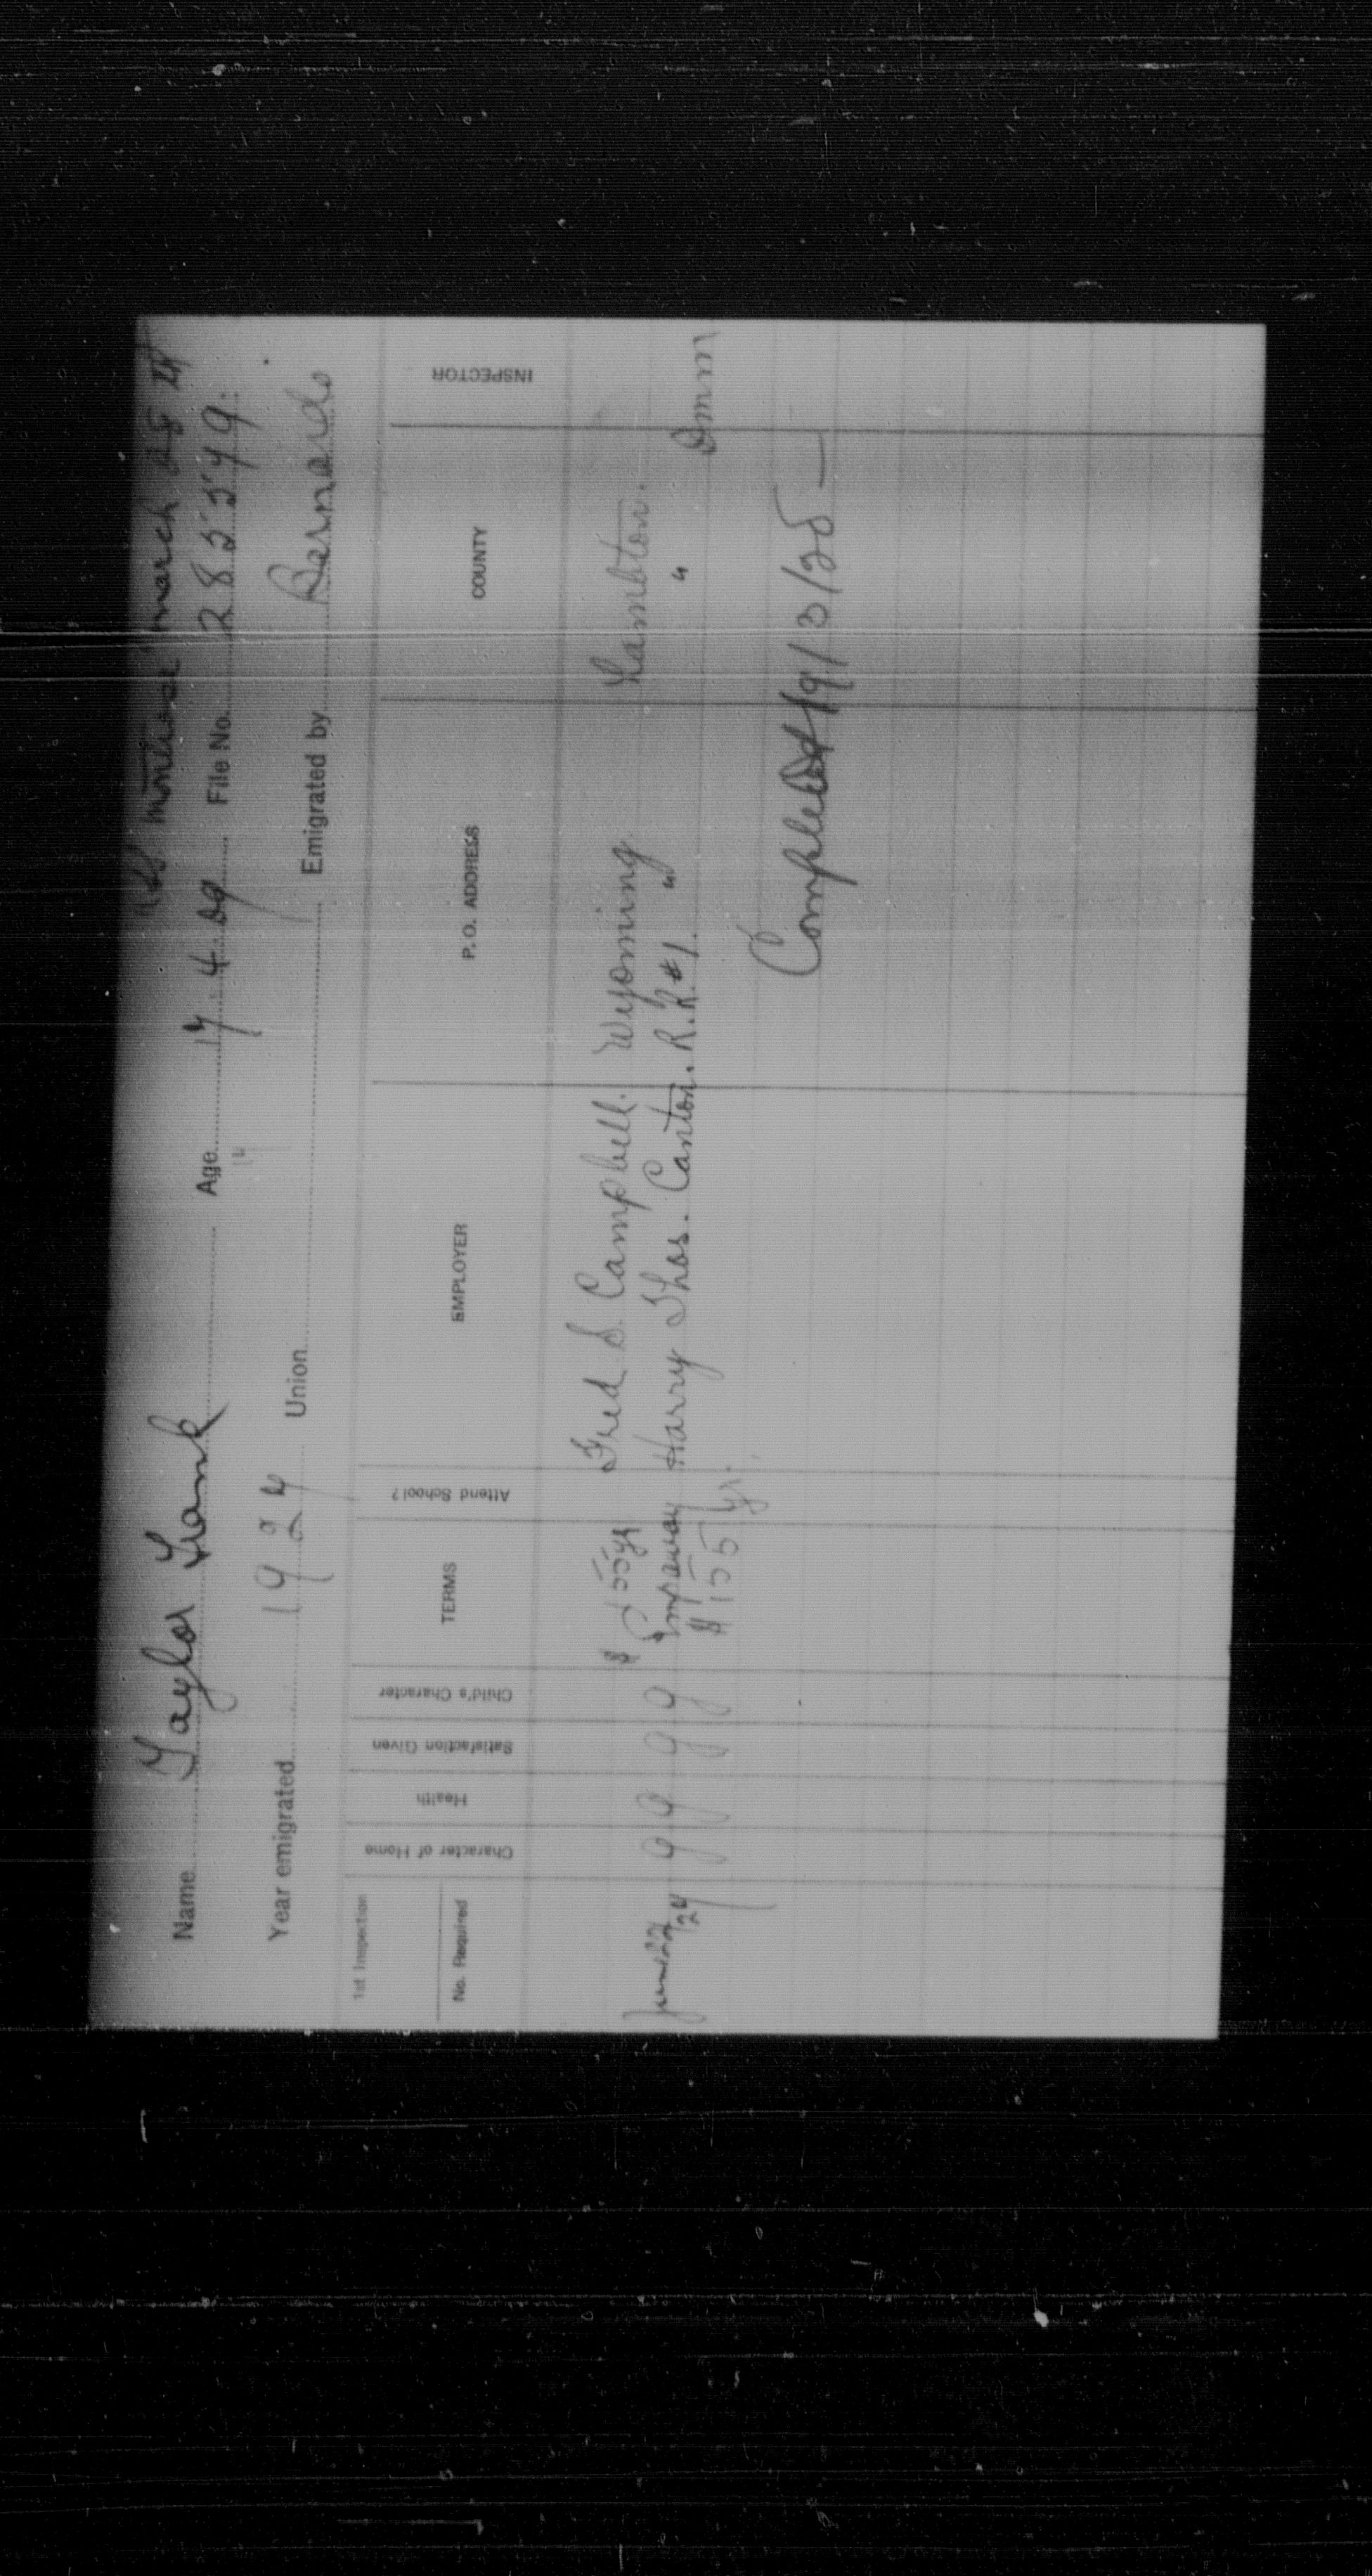 SS Montrose March 28 24
Name Taylor Frank Age 17 4 09 File No. 285549
14
Year emigrated 1924 Union Emigrated by Barnardo
1st Inspection
No. Required Character of Home Health Satisfaction Given Child's Character TERMS Attend School? EMPLOYER P. O. ADDRESS COUNTY INSPECTOR
Fred S. Campbell. Wyoming Lambton.
June 22/24 g g g g Harry Thos. Canton. R.R.#1. " " Dmm
$155 yr.
Completed 19/3/28